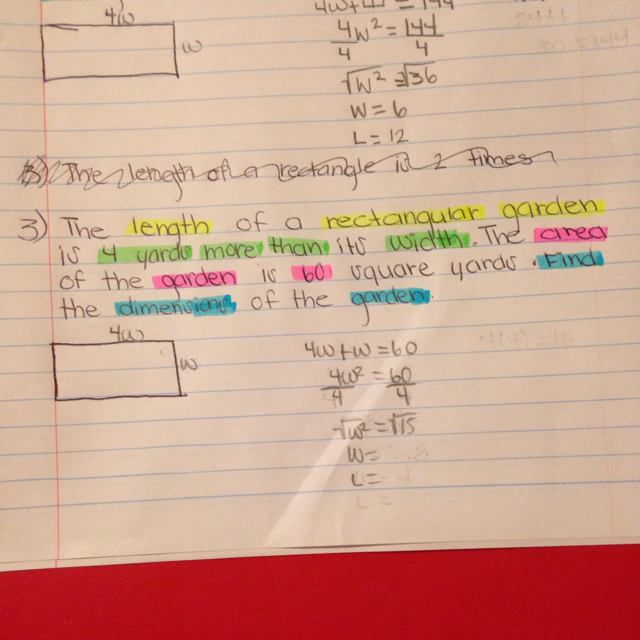 4w
w
4w² = 144
4 4
√w² = √36
W = 6
L = 12
The length of a rectangle is 2 times
3) The length of a rectangular garden
is 4 yards more than its width. The area
of the garden is 60 square yards. Find
the dimensions of the garden.
4w
w
4w+w = 60
4w² = 60
4 4
√w² = √15
W =
L =
L =